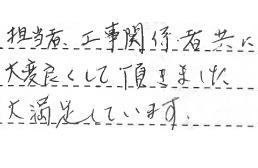 担当者、工事関係者共に
大変良くして頂きました
大満足しています。